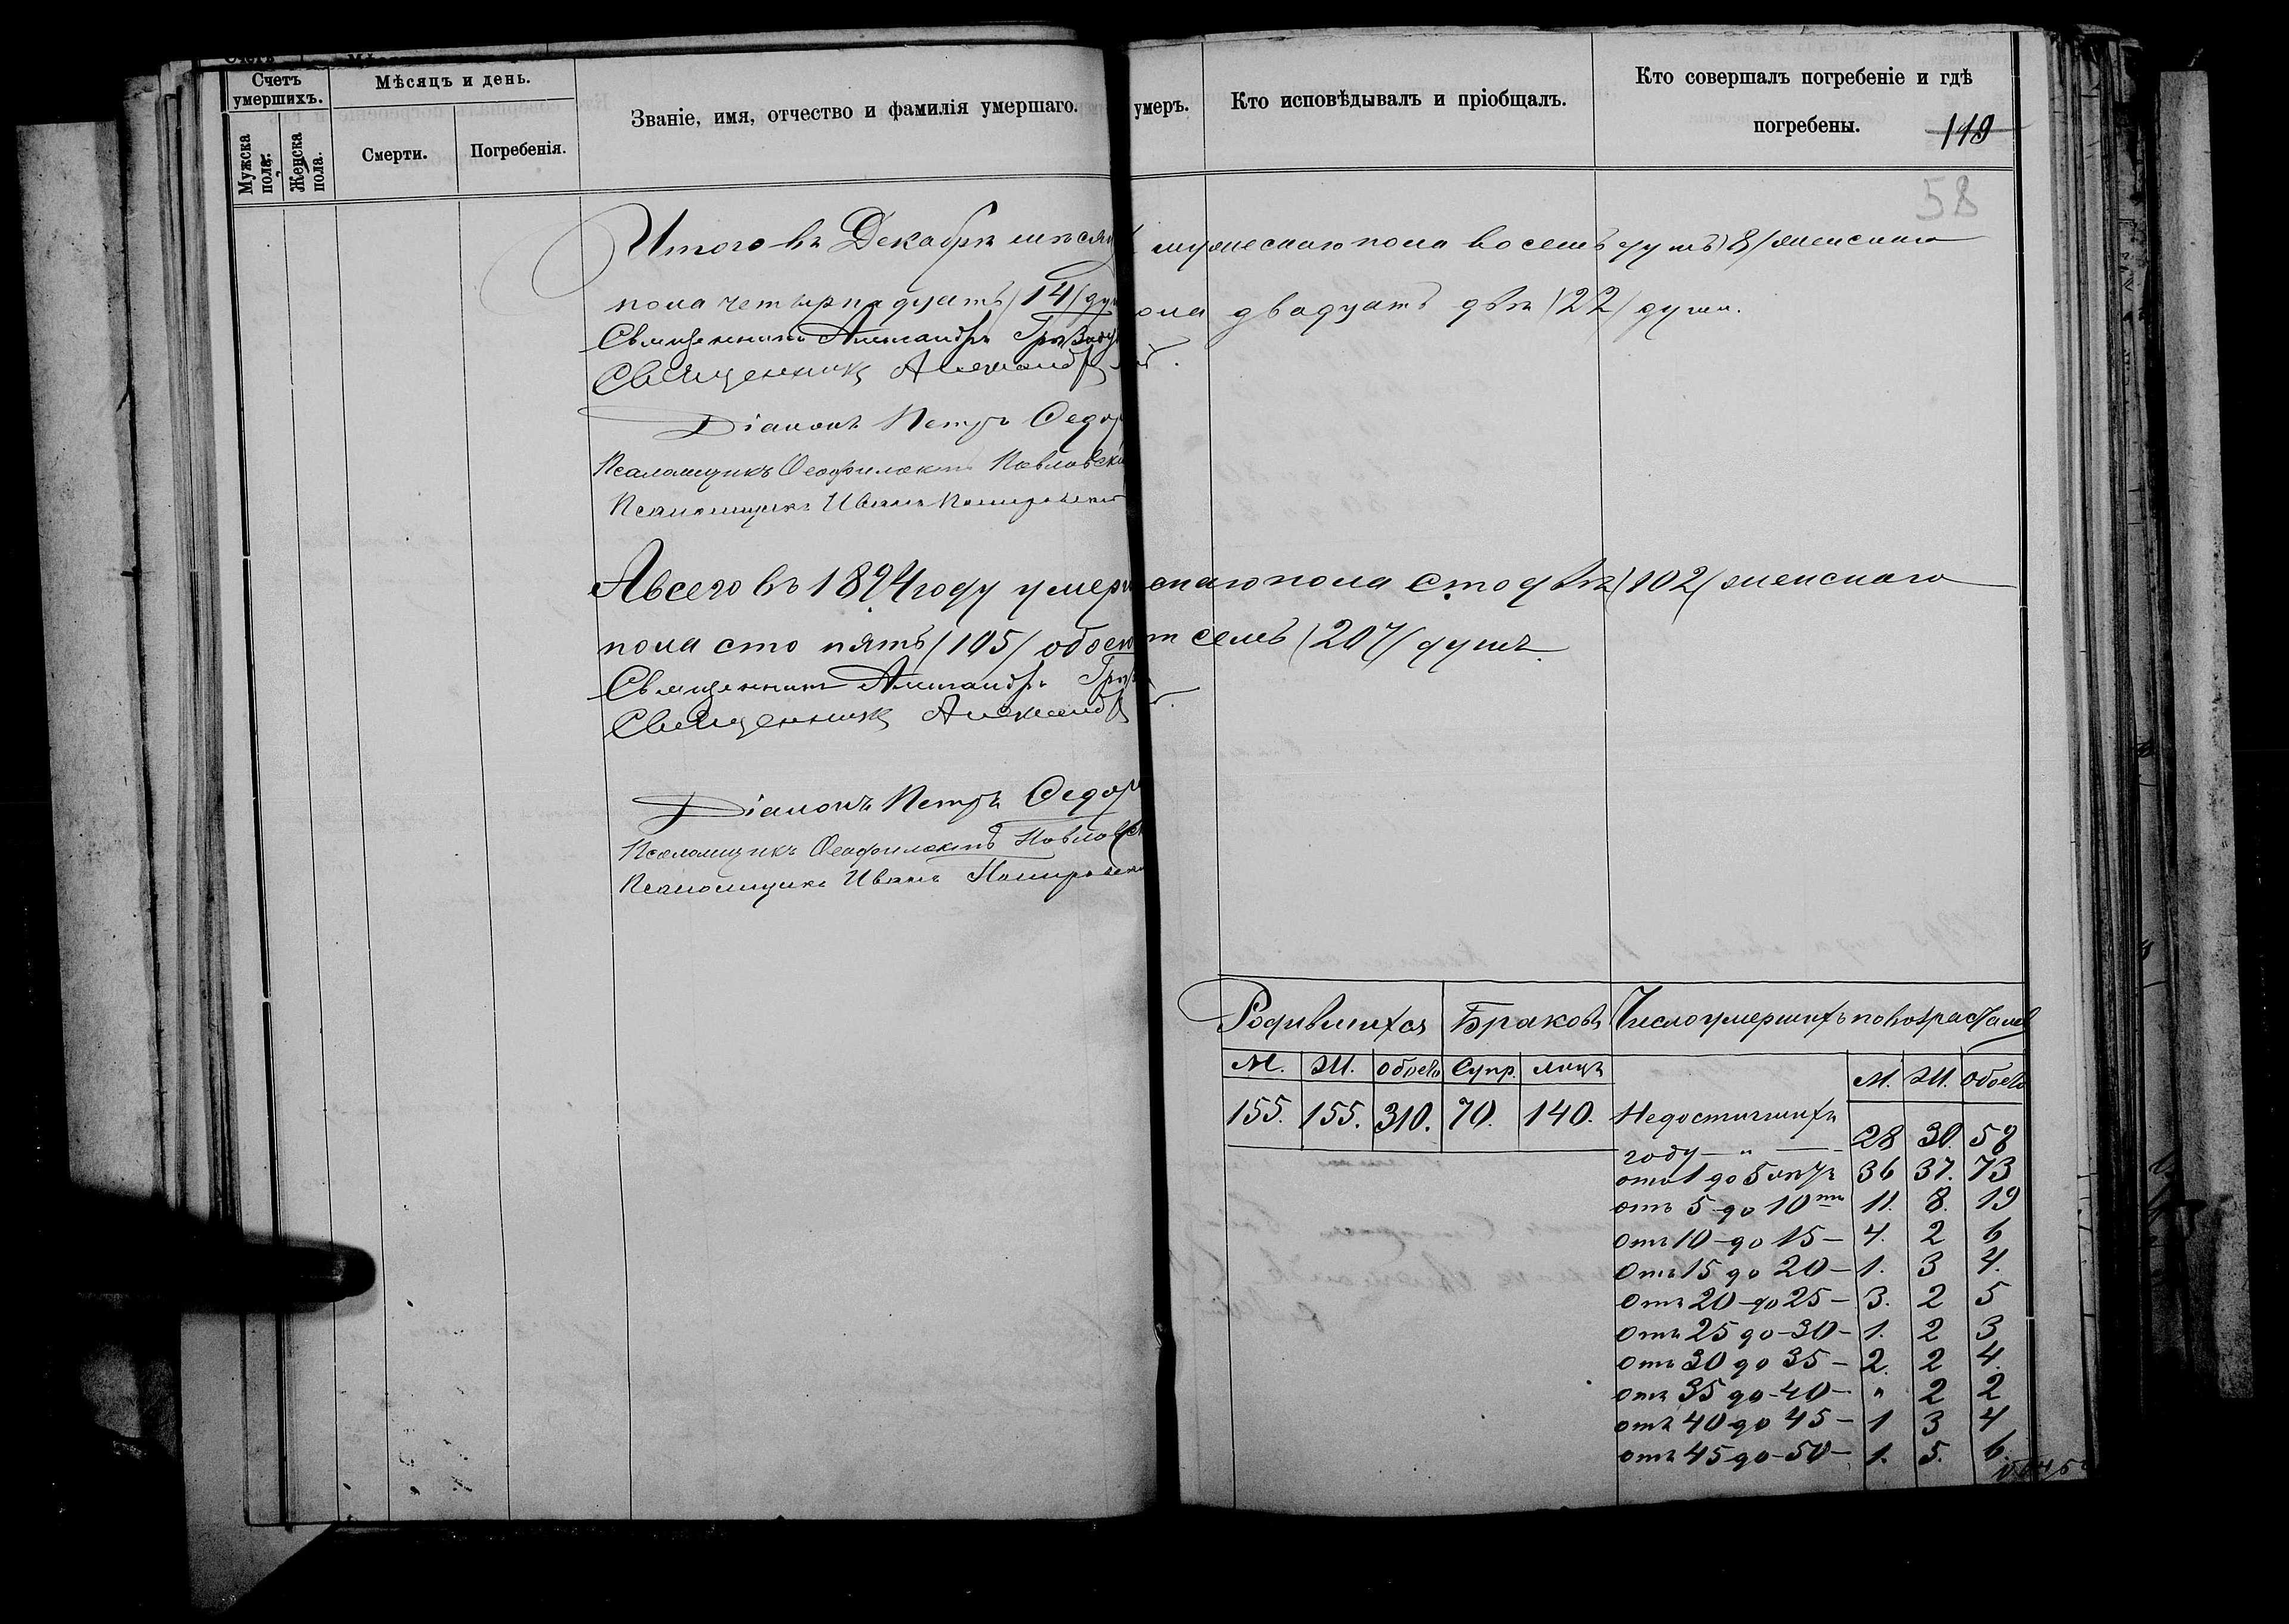 Счетъ умершихъ.
Мужска пола.
Женска пола.
Мѣсяцъ и день.
Смерти.
Погребенія.
Званіе, имя, отчество и фамилія умершаго.
умеръ.
Кто исповѣдывалъ и пріобщалъ.
Кто совершалъ погребеніе и гдѣ
погребены.
119
58
Итого въ Декабрѣ мѣсяц мужескаго пола восемь душъ /8/ женскаго
пола четырнадцать /14/ душ ола двадцать двѣ /22/ души.
Священникъ Александръ
Священникъ Александр
Діаконъ Петръ Ѳедор
Псаломщикъ Ѳеофилактъ Павловск
Псаломщикъ Иванъ
А всего въ 1894 году умер скаго пола сто двѣ /102/ женскаго
пола сто пять /105/ обоего т семь /207/ душъ.
Священникъ Александръ
Священникъ Александр
Діаконъ Петръ Ѳедор
Псаломщикъ Ѳеофилактъ Павловск
Псаломщикъ Иванъ
Родившихся Браковъ Число умершихъ по возрастамъ
М. Ж. обоего Супр. лицъ М. Ж. обоего
155. 155. 310. 70. 140. Недостигшихъ
году — " — 28 30. 58
отъ 1 до 5 лѣтъ 36 37. 73
отъ 5 до 10 ти 11. 8. 19
отъ 10 до 15 — 4. 2 6
отъ 15 до 20 — 1. 3 4.
отъ 20 до 25 — 3. 2 5
отъ 25 до 30 — 1. 2 3
отъ 30 до 35 — 2. 2 4.
отъ 35 до 40 — " 2 2
отъ 40 до 45 — 1 3 4
отъ 45 до 50 — 1. 5. 6.